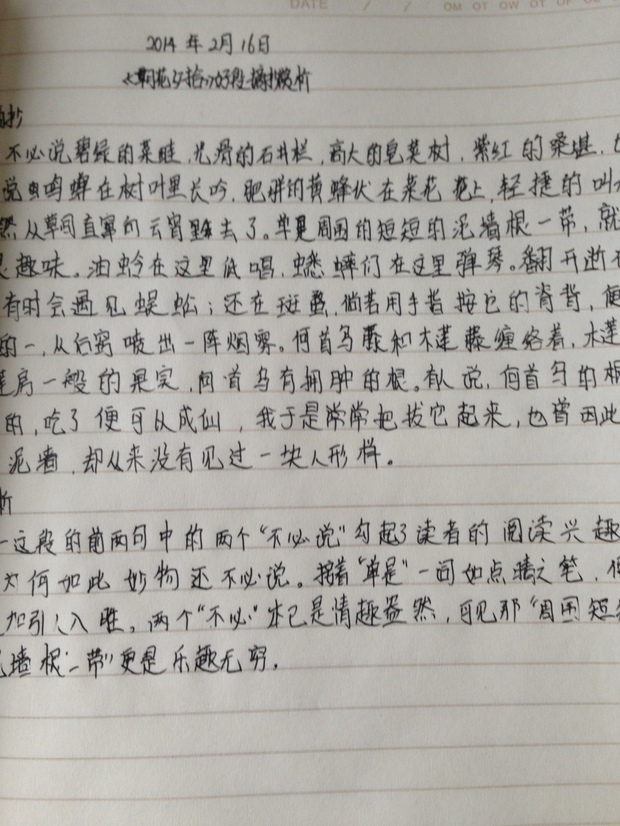 DATE / /
2014 年 2月 16日
《朝花夕拾》好段摘抄赏析
摘抄
不必说碧绿的菜畦，光滑的石井栏，高大的皂荚树，紫红的桑椹，也
说虫鸣蝉在树叶里长吟，肥胖的黄蜂伏在菜花花上，轻捷的叫
然从草间直窜向云霄里去了。单是周围的短短的泥墙根一带，就
趣味。油蛉在这里低唱，蟋蟀们在这里弹琴。翻开断
有时会遇见蜈蚣；还在斑蝥，倘若用手指按它的脊背，便
的一，从后窍喷出一阵烟雾。何首乌藤和木莲藤缠络着，木莲
房一般的果实，何首乌有拥肿的根。有人说，何首乌的根
的，吃了便可以成仙，我于是常常把拔它起来，也曾因此
泥墙，却从来没有见过一块人形样。
析
这段的前两句中的两个“不必说”勾起了读者的阅读兴趣
为何如此妙物还不必说。接着“单是”一词如点睛之笔，
加引人入胜，两个“不必”本已是情趣盎然，可见那“周围短
墙根一带”更是乐趣无穷，